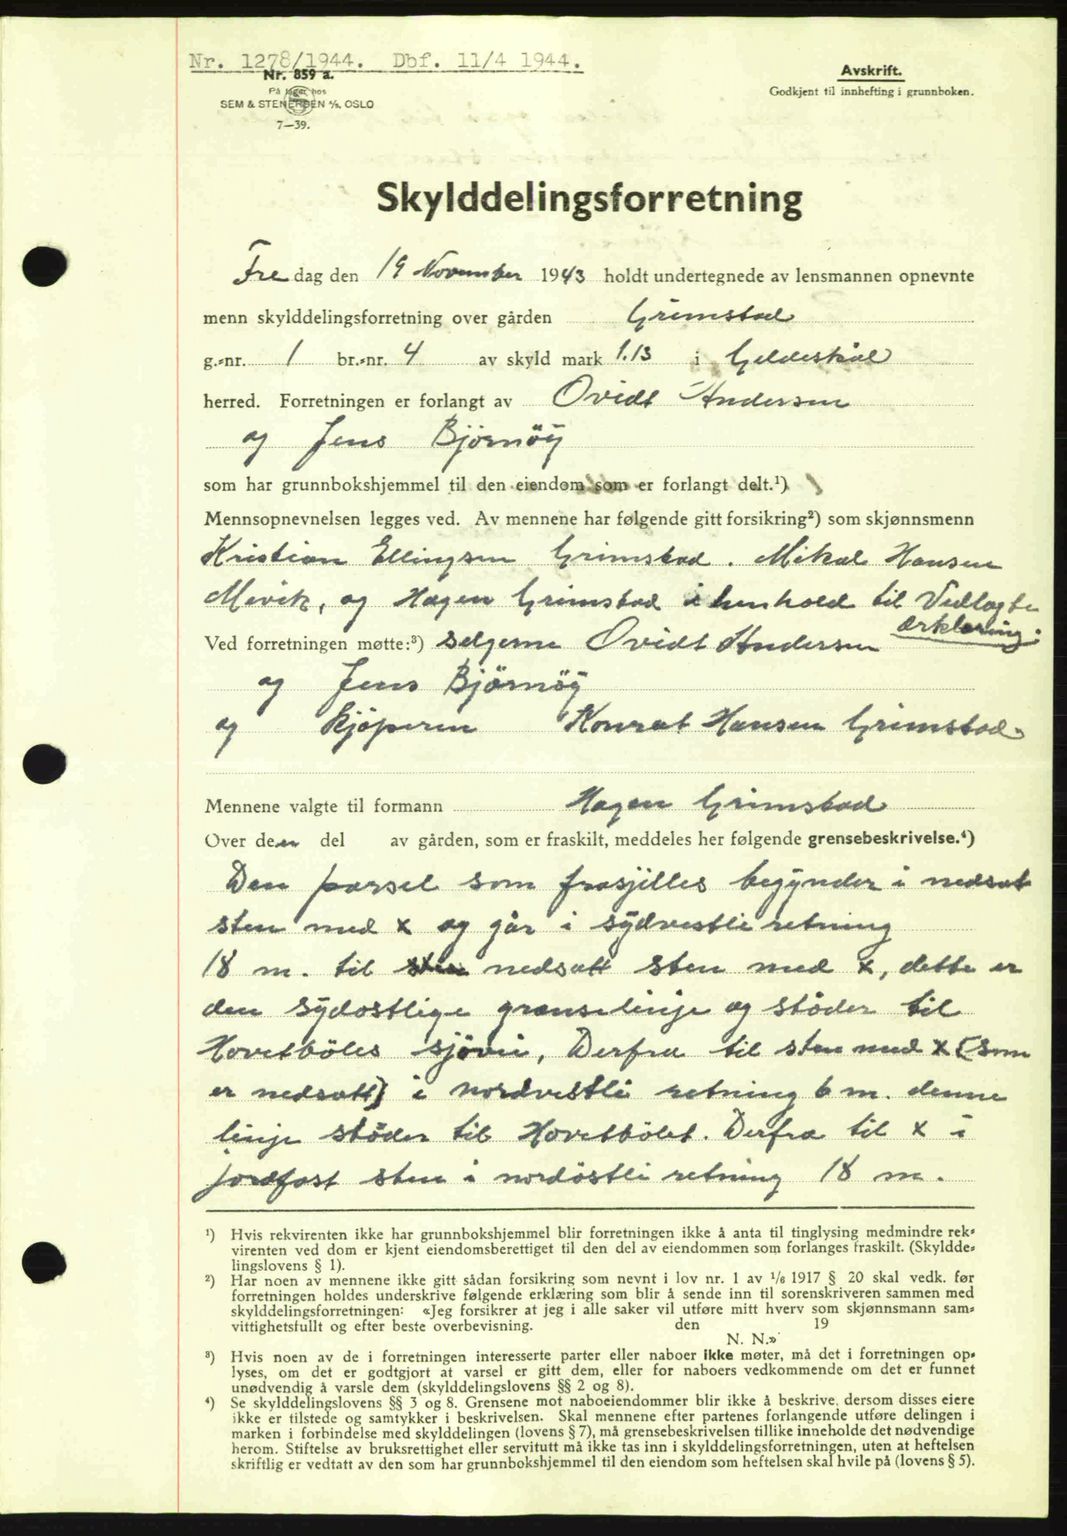 Nr. 1278/1944. Dbf. 11/4 1944.
Nr. 859 a.
På lager hos
SEM & STENERSEN A/S, OSLO
7—39.
Avskrift.
Godkjent til innhefting i grunnboken.
Skylddelingsforretning
Fre dag den 19 November 1943 holdt undertegnede av lensmannen opnevnte
menn skylddelingsforretning over gården Grimstad
g.-nr. 1 br.-nr. 4 av skyld mark 1.13 i Gildeskål
herred. Forretningen er forlangt av Ovidt Andersen
og Jens Bjørnøy
som har grunnbokshjemmel til den eiendom som er forlangt delt.¹)
Mennsopnevnelsen legges ved. Av mennene har følgende gitt forsikring²) som skjønnsmenn
Kristian Ellingsen Grimstad. Mikal Hansen
Mevik, og Hagen Grimstad i henhold til Vedlagte
ærklæring.
Ved forretningen møtte:³) selgerne Ovidt Andersen
og Jens Bjørnøy
og kjøperen Konrat Hansen Grimstad
Mennene valgte til formann Hagen Grimstad
Over den del av gården, som er fraskilt, meddeles her følgende grensebeskrivelse.⁴)
Den parsel som frasjilles begynder i nedsat
sten med x og går i sydvestli retning
18 m. til nedsatt sten med x, dette er
den sydostlige granselinje og støder til
Hovetbölets sjøvei, Derfra til sten med x (som
er nedsatt) i nordvestli retning 6 m. denne
linje støder til Hovetbölet. Derfra til x i
jordfast sten i nordöstli retning 18 m.
¹) Hvis rekvirenten ikke har grunnbokshjemmel blir forretningen ikke å anta til tinglysing medmindre rek-
virenten ved dom er kjent eiendomsberettiget til den del av eiendommen som forlanges fraskilt. (Skyldde-
lingslovens § 1).
²) Har noen av mennene ikke gitt sådan forsikring som nevnt i lov nr. 1 av 1/6 1917 § 20 skal vedk. før
forretningen holdes underskrive følgende erklæring som blir å sende inn til sorenskriveren sammen med
skylddelingsforretningen: «Jeg forsikrer at jeg i alle saker vil utføre mitt hverv som skjønnsmann sam-
vittighetsfullt og efter beste overbevisning. den 19
N. N.»
³) Hvis noen av de i forretningen interesserte parter eller naboer ikke møter, må det i forretningen op-
lyses, om det er godtgjort at varsel er gitt dem, eller for naboers vedkommende om det er funnet
unødvendig å varsle dem (skylddelingslovens §§ 2 og 8).
⁴) Se skylddelingslovens §§ 3 og 8. Grensene mot naboeiendommer blir ikke å beskrive, dersom disses eiere
ikke er tilstede og samtykker i beskrivelsen. Skal mennene efter partenes forlangende utføre delingen i
marken i forbindelse med skylddelingen (lovens § 7), må grensebeskrivelsen tillike inneholde det nødvendige
herom. Stiftelse av bruksrettighet eller servitutt må ikke tas inn i skylddelingsforretningen, uten at heftelsen
skriftlig er vedtatt av den som har grunnbokshjemmel til den eiendom som heftelsen skal hvile på (lovens § 5).